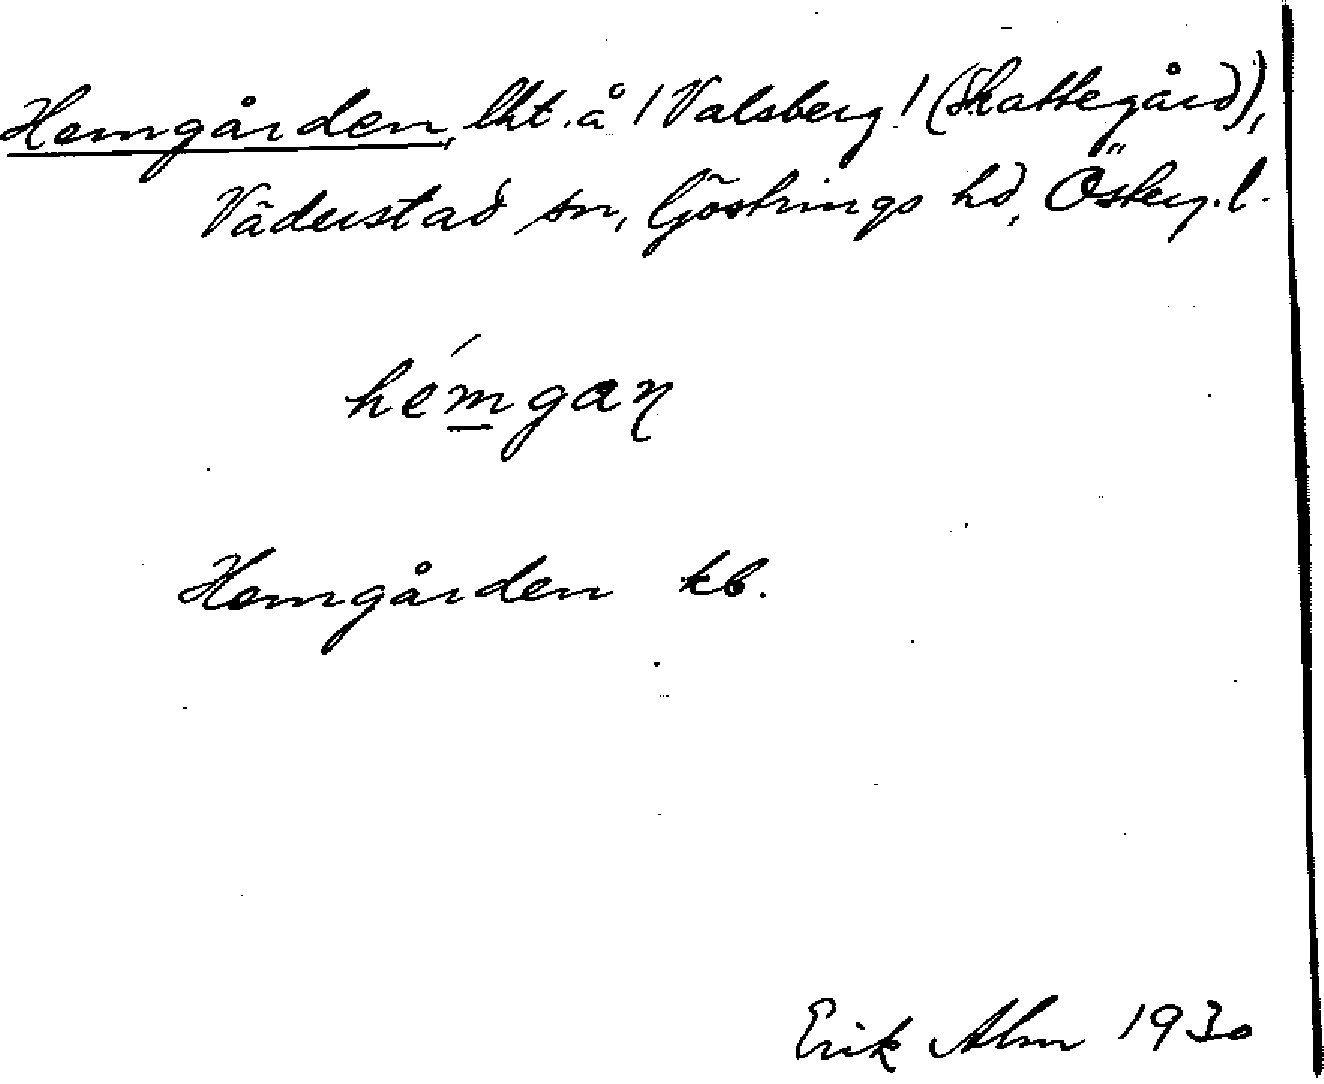 Hemgården, lht. å 1 Valsberg! (Skattegård),
Väderstad sn, Göstrings hd, Österg. l.
hémgaɳ
Hemgården kb.
Erik Alm 1930